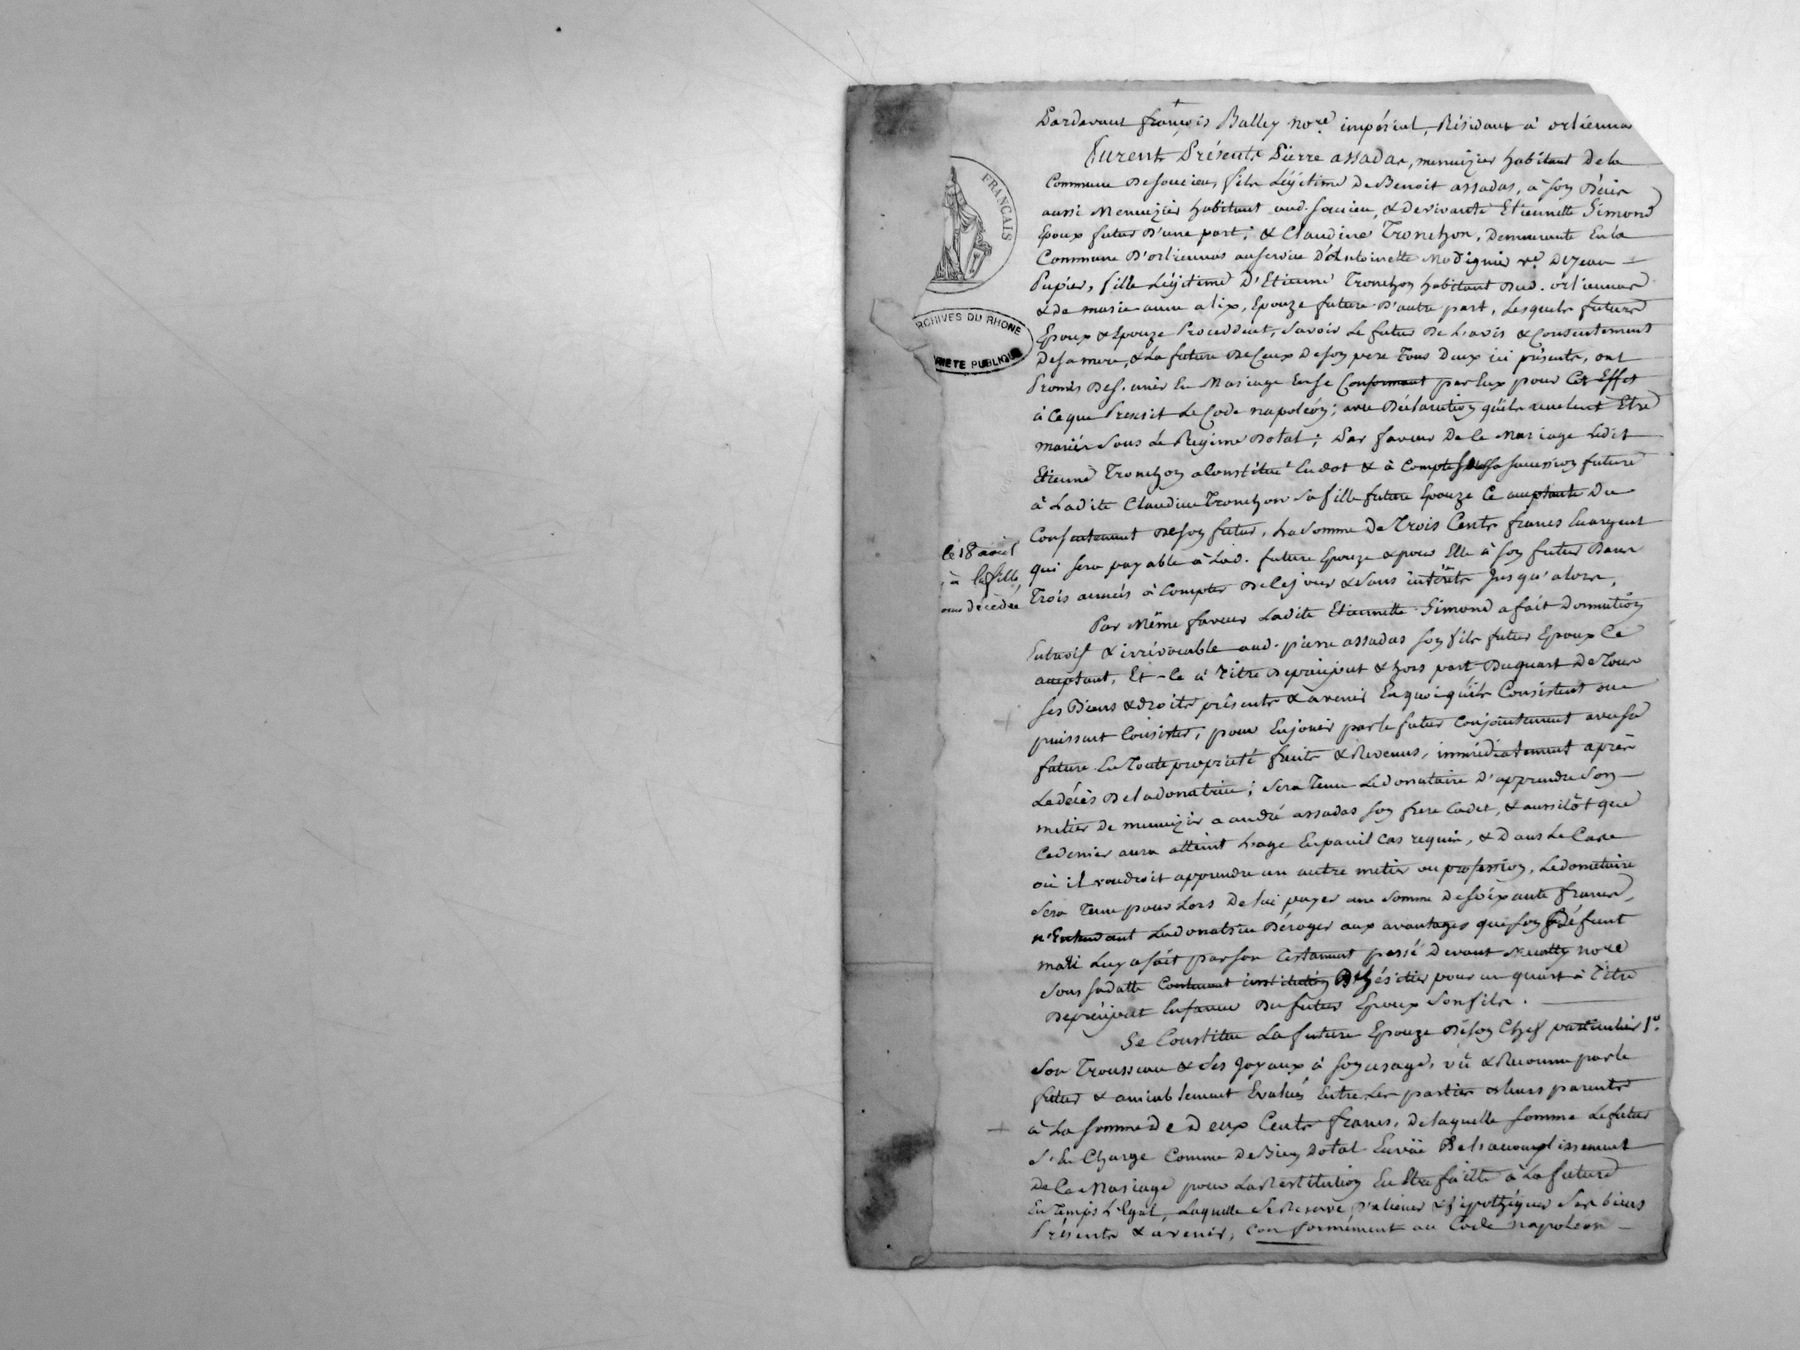 Pardevant françois Balley no.re impérial, Résidant à orliénnas
furent Présents Pierre assadas, menuizier habitant de la
Commune de soucieu, fils Légitime de Benoit assadas, à son Décès
aussi Menuizier habitant aud. soucieu, & de vivante Etiennette Simond
Epoux futur d'une part; & Claudine Tronchon, demeurante En la
Commune d'orliennas au service d'Antoinette v.e de jean
Pupier, fille Légitime d'Etienne Tronchon habitant aud. orliennas
& de marie anne alix, Epouze future d'autre part, Lesquels futurs
Epoux & Epouze Procèddent, savoir Le futur de L'avis & Consentement
de sa mere, & La future de Ceux de son pere Tous deux ici présents, ont
Promis de s'unir En Mariage En se Conformant par Eux pour Cet Effet
à Ce que Prescrit Le Code napoléon; avec Déclaration qu'ils veulent Etre
mariés sous Le Regime Dotal; Par faveur de Ce Mariage Ledit
Etienne Tronchon a Constitué En dot & à Compte de sa succession future
à Ladite Claudine Tronchon sa fille future Epouze Ce acceptante du
Consentement de son futur, La somme de Trois Cents francs En argent
qui sera payable à Lad. future Epouze & pour Elle à son futur Dans
Trois années à Compter de Ce jour & sans intérêts jusqu'alors.
Le 18 août
à la fille
décédée
Par Même faveur Ladite Etiennette Simond a fait Donnation
Entrevif & irrévocable aud. pierre assadas son fils futur Epoux Ce
acceptant, Et Ce à Titre de préciput & hors part du quart de Tous
ses Biens & droits présents & avenir En quoi qu'ils Consistent ou
puissent Consister, pour En jouir par le futur Conjointement avec sa
future En Toute propriété fruits & Revenus, immédiatement après
Le décès de la donatrice; sera Tenu Le donataire d'apprendre son
métier de menuizier a andré assadas son frere Cadet, & aussitôt que
Ce dernier aura atteint L'age En pareil cas requis, & Dans Le Cas
où il voudroit apprendre un autre metier ou profession, Le donataire
sera Tenu pour Lors de lui payer une somme de soixante francs,
n'Entendant La donatrice Déroger aux avantages que son Défunt
mari Luy a fait par son Testament passé devant no.re
sous sa datte Contenant institution D'héritier pour un quart à Titre
de préciput En faveur du futur Epoux son fils.
Se Constitue La future Epouze De son Chef particulier 1°.
son Trousseau & ses joyaux à son usage, vû & Reconnu par le
futur & amiablement Evalués Entre Les parties & leurs parents
à La somme de deux Cents francs, de laquelle somme Le futur
s'En Charge Comme de Bien Dotal En vüe De L'accomplissement
de Ce Mariage pour La Restitution En Etre faitte à La future
En Temps L'Egal, Laquelle se Réserve d'aliéner & hipothéquer ses biens
Présents & avenir, conformément au Code napoléon
FRANÇAIS
ARCHIVES DU RHONE
PROPRIETE PUBLIQUE